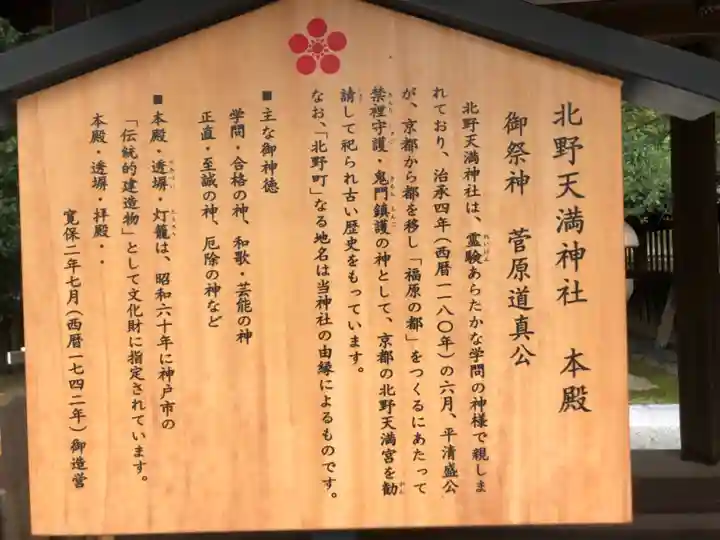 北野天満神社　本殿
御祭神　菅原道真公
北野天満神社は、霊験あらたかな学問の神様で親しま
れており、治承四年（西暦一一八〇年）の六月、平清盛公
が、京都から都を移し「福原の都」をつくるにあたって
禁裡守護・鬼門鎮護の神として、京都の北野天満宮を勧
請して祀られ古い歴史をもっています。
なお、「北野町」なる地名は当神社の由縁によるものです。
■主な御神徳
学問・合格の神、和歌・芸能の神
正直・至誠の神、厄除の神など
■本殿・透塀・灯籠は、昭和六十年に神戸市の
「伝統的建造物」として文化財に指定されています。
本殿・透塀・拝殿・・
寛保二年七月（西暦一七四二年）御造営